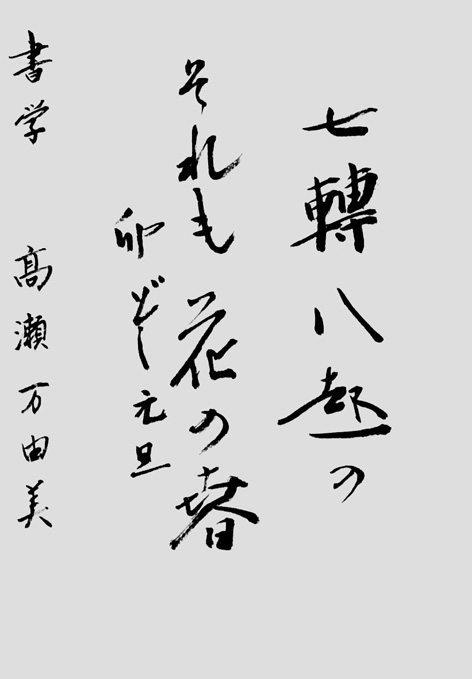 七轉八起の
それも花の春
卯どし元旦
書学 髙瀬万由美